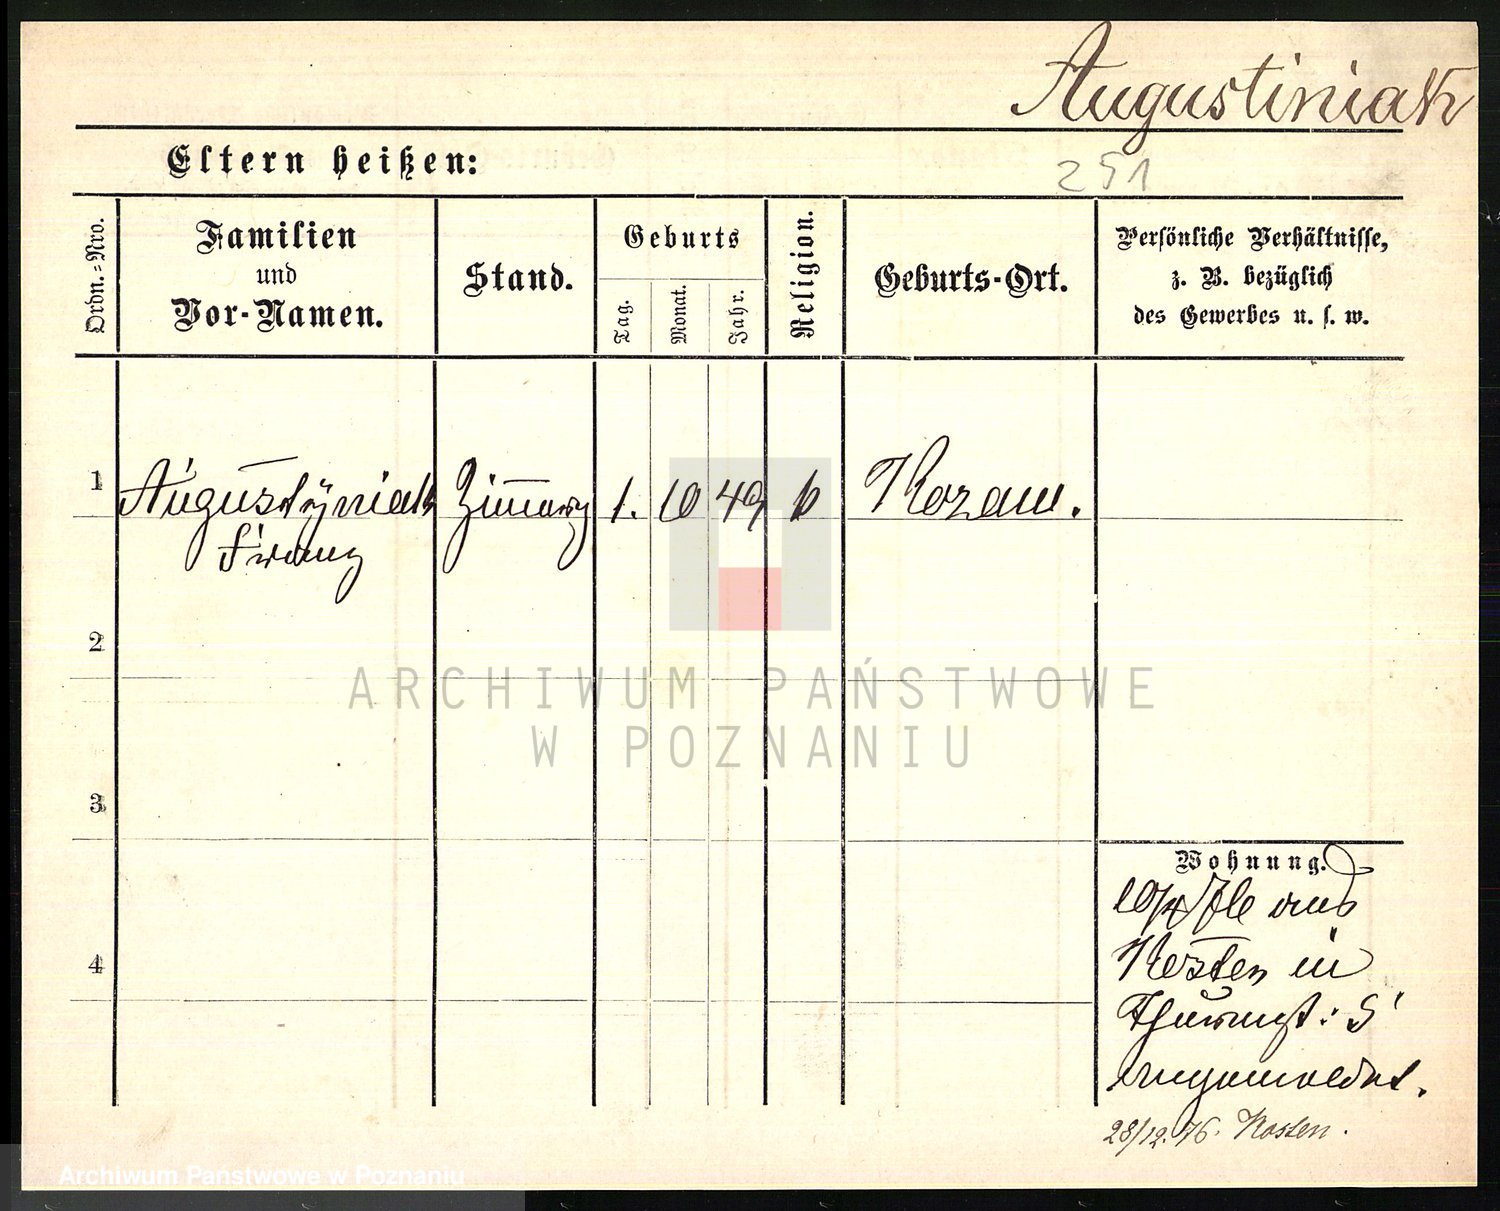 Augustiniak
Eltern heißen:
251
Ordn.=Nro.
Familien
und
Vor-Namen.
Stand.
Geburts
Tag.
Monat.
Jahr.
Religion.
Geburts-Ort.
Persönliche Verhältnisse,
z. B. bezüglich
des Gewerbes u. s. w.
1
Augustyniak
Franz
1. 10 49
2
3
4
Wohnung.
10/4 76 aus
Kosten in
angemeldet.
28/12.76. Kosten.
ARCHIWUM PAŃSTWOWE
W POZNANIU
Archiwum Państwowe w Poznaniu